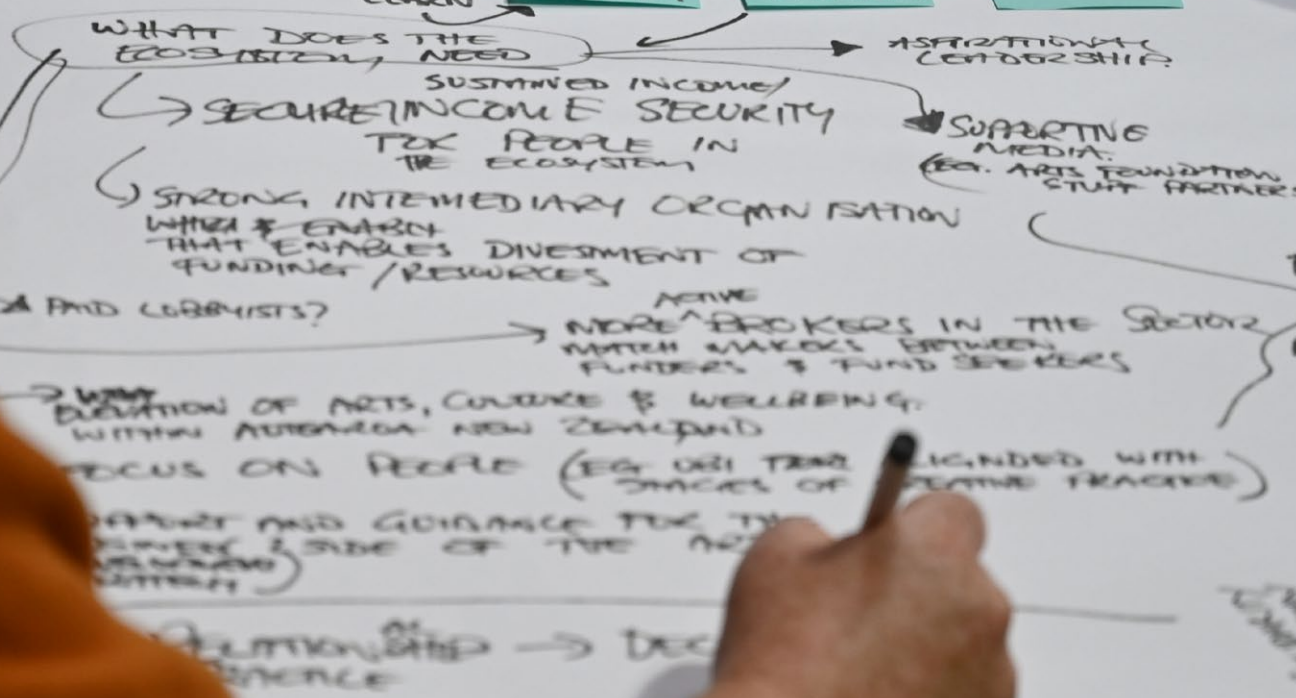 WHAT DOES THE
ECOSYSTEM, NEED
ASPIRATIONAL
LEADERSHIP.
SUSTAINED INCOME/
SECURE/INCOME SECURITY
FOR PEOPLE IN
THE ECOSYSTEM
SUPPORTING
MEDIA.
(EG. ARTS FOUNDATION
STUFF PARTNER
STRONG INTEMEDIARY ORGANISATION
THAT ENABLES DIVESTMENT OF
FUNDING/RESOURCES
PAID LOBBYISTS?
ACTIVE
MORE ^ BROKERS IN THE SECTOR
MATCH MAKERS BETWEEN
FUNDERS & FUND SEEKERS
ELEVATION OF ARTS, CULTURE & WELLBEING.
WITHIN AOTEAROA NEW ZEALAND
FOCUS ON PEOPLE (EG UBI WITH
SPACES OF PRACTICE)
AND GUIDANCE FOR
SIDE OF THE
RELATIONSHIP → DEC